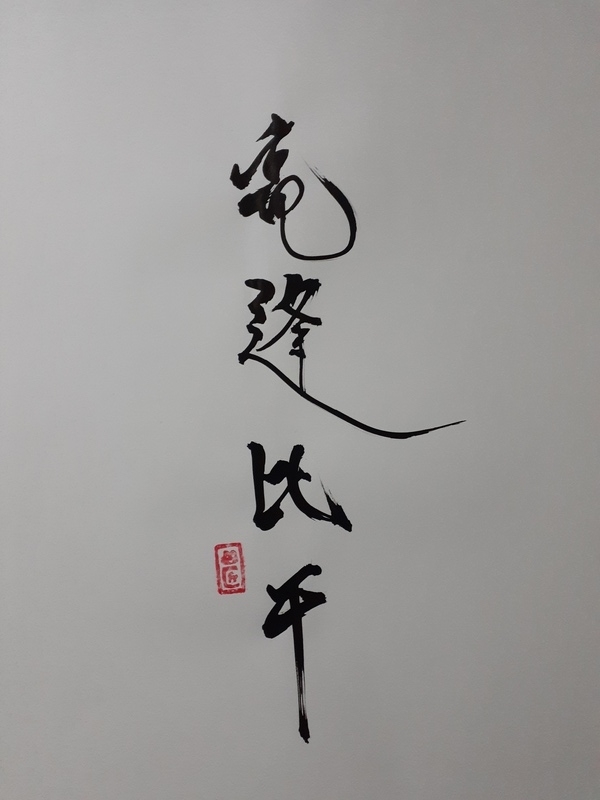 竜逢比干